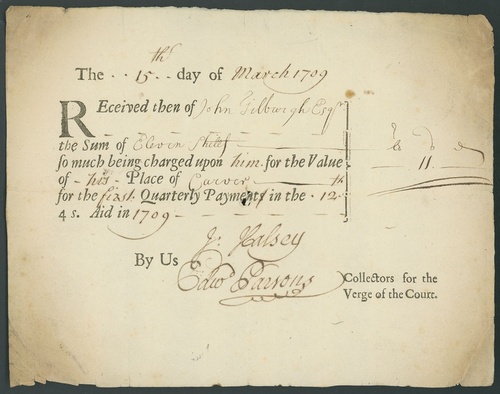 The 15th day of March 1709
REceived then of John Gilburgh Esqr
the Sum of Eleven Shill
so much being charged upon him for the Value
of his Place of Carver
for the first Quarterly Payment in the 12th
4 s. Aid in 1709
11
By Us
J. Halsey
Edwd Parsons
Collectors for the
Verge of the Court.